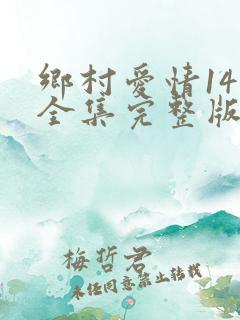 鄉村愛情14
全集完整版
梅哲君
未经同意禁止转载